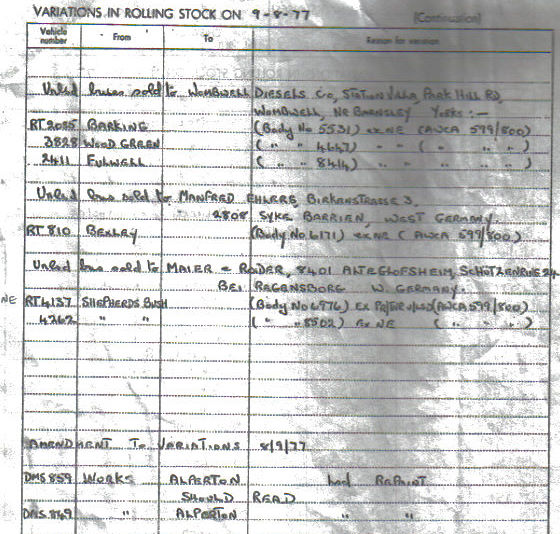 VARIATIONS IN ROLLING STOCK ON 9-8-77 (Continuation)
Vehicle number From To Reason for variation
Unlicd buses sold to WOMBWELL DIESELS CO, STATION VILLA, PARK HILL RD,
WOMBWELL, NR BARNSLEY YORKS :—
RT 2085 BARKING (Body No 5531) ex NE (AWCA 599/800)
3828 WOOD GREEN ( " " 4647) " " ( " " " )
2411 FULWELL ( " " 8414) " " ( " " " )
Unlicd bus sold to MANFRED EHLERS, BIRKENSTRASSE 3,
2808 SYKE BARRIEN, WEST GERMANY
RT 810 BEXLEY (Body No 6171) ex NE (AWCA 599/800)
Unlicd bus sold to MAIER & RODER, 8401 ALTEGLOFSHEIM, 24
BEI RAGENSBORG W. GERMANY.
NE RT 4137 SHEPHERDS BUSH (Body No 6976) EX (AWCA 599/800)
4262 " " ( " " 8502) Ex NE ( " " " )
AMENDMENT TO VARIATIONS 8/9/77
DMS 859 WORKS ALPERTON REPAINT
SHOULD READ
DMS 869 " ALPERTON " "